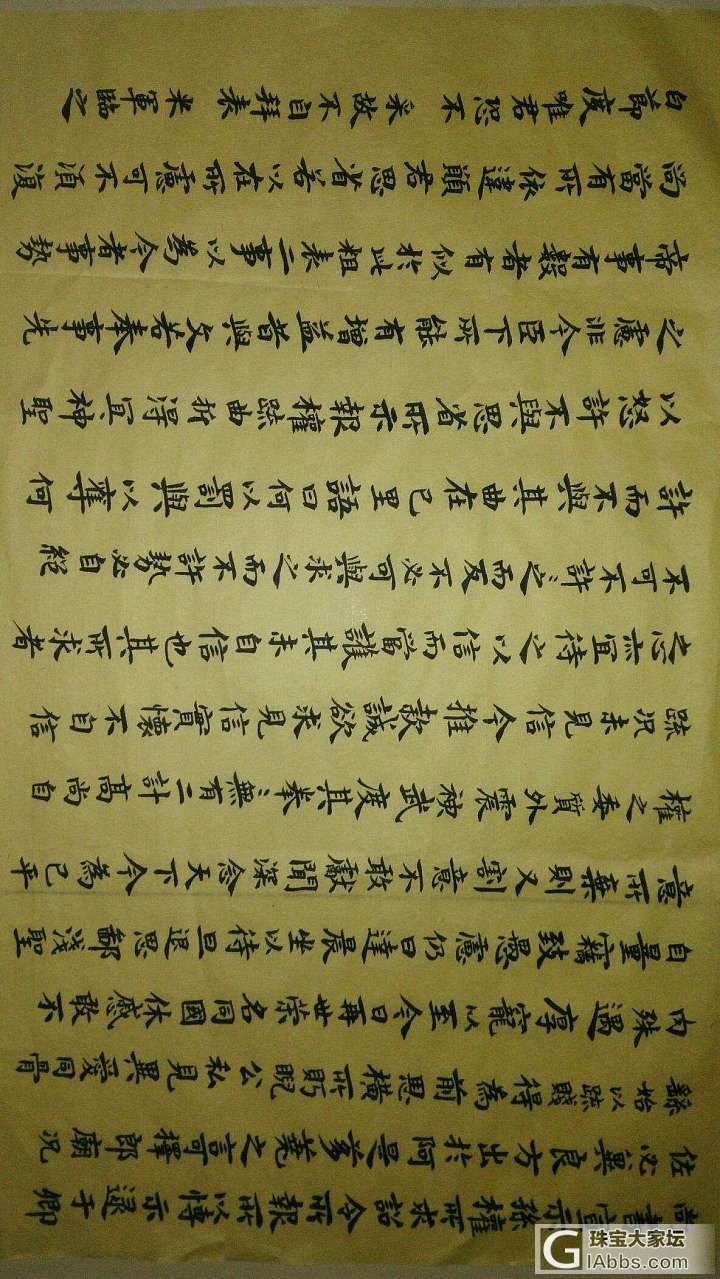 尚書宣示孫權所求詔令所報所以博示逯于卿
佐必冀良方出於阿是芻蕘之言哥擇郎廟況
繇始以疎賤得為前恩橫所盱睨公私見異愛同骨
肉殊遇厚寵以至今日再世榮名同國休慼敢不
自量竊致愚慮仍日達晨坐以待旦退思鄙淺聖
意所棄則又割意不敢獻聞深念天下今為已平
權之委質外震神武度其拳〻無有二計高尚自
疎況未見信今推款誠欲求見信實懷不自信
之心亦宜待之以信而當護其未自信也其所求者
不可不許〻之而反不必可與求之而不許勢必自絕
許而不與其曲在己里語曰何以罰與以奪何
以怒許不與思省所示報權疏曲折得宜神聖
之慮非今臣下所能有增益昔與文若奉事先
帝事有數者有似於此粗表二事以為今者事勢
尚當有所依違願君思省若以在所慮可不須復
白節度唯君恐不采故不自拜表 米軍臨之
珠宝大家坛
GIAbbs.com